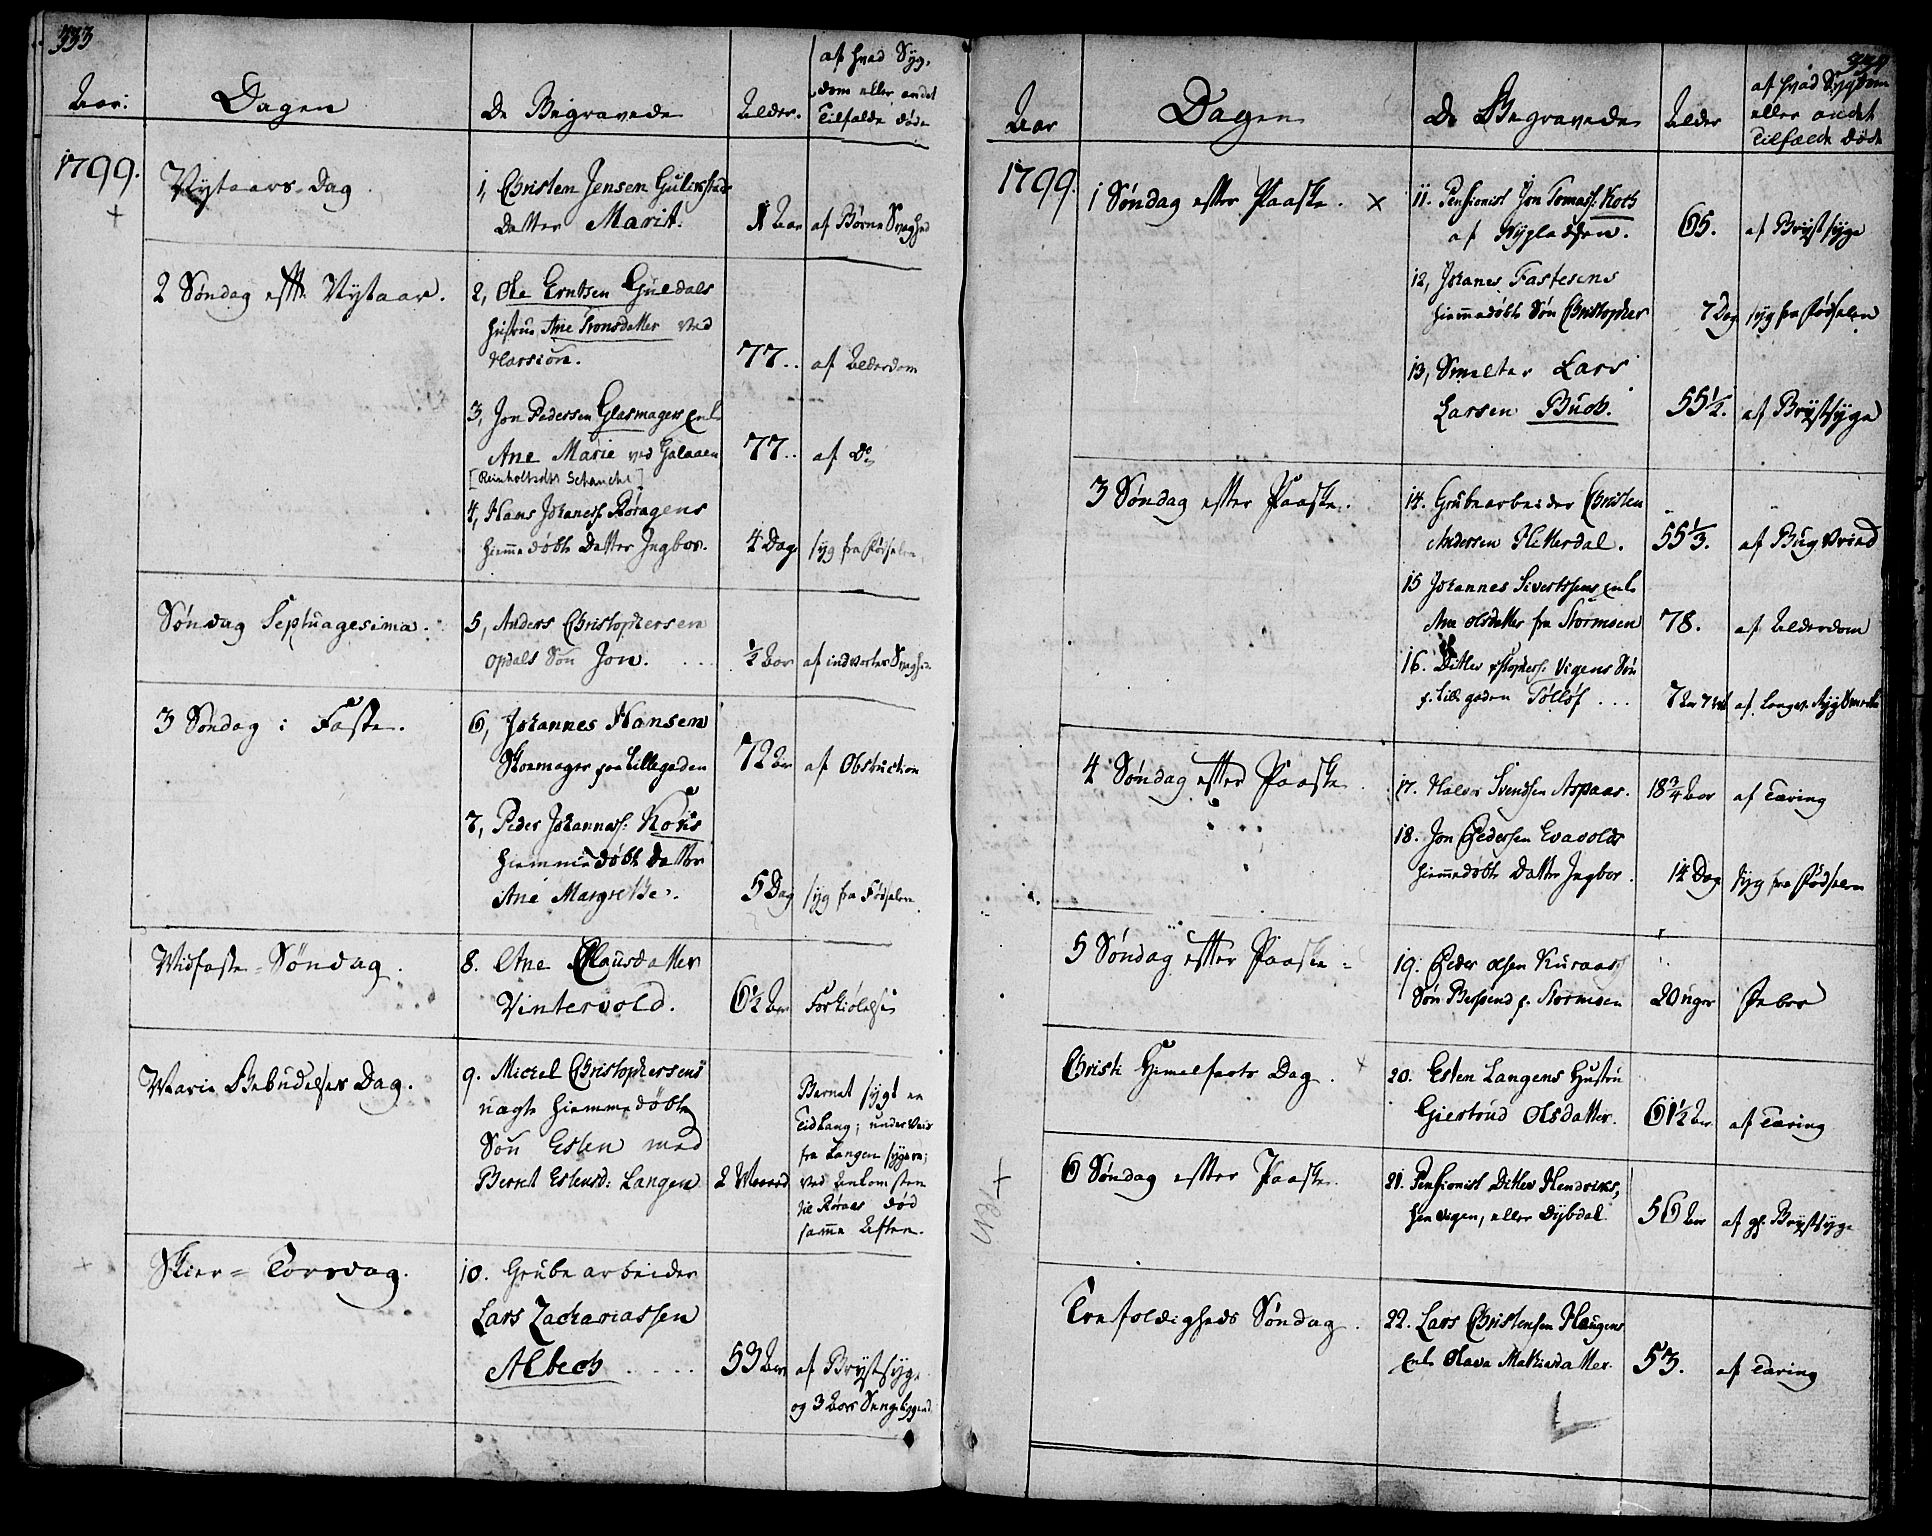 333
Aar:
Dagen
De Begravede
Alder.
af hvad Syg-
dom eller andet
Tilfælde døde
1799.
Nytaars-Dag.
1, Christen Jensen Gulikstads
Datter Marit.
1 Aar
af Børne Svaghed
2 Søndag efft. Nytaar.
2, Ole Erntsen Guldals
Hustrue Ane Tronsdatter ved
Harsiøn.
77..
af Alderdom
3, Jon Pedersen Glasmagers Enke
Ane Marie ved Galaaen
[Reinholtsdtr Schanche]
77..
af Do
4, Hans Johaness. Røragens
hiemmedøbte Datter Ingbor.
4 Dag
syg fra Fødselen
Søndag Septuagesima.
5, Anders Christophersen
Opdals Søn Jon.
½ Aar
af indvortes Svaghed
3 Søndag i Faste.
6, Johannes Hansen
Skomager paa Lillegaden
72 Aar
af Obstruction
7, Peder Johanness: Koks
hiemmedøbte Datter
Ane Margrethe.
5 Dag
syg fra Fødselen
Midfaste-Søndag.
8. Ane Clausdatter
Vintervold.
6½ Aar
Forkiølelse
Mariæ Bebudelses Dag.
9. Mickel Christophersens
uægte hiemmedøbte
Søn Esten med
Bernt Estensd: Langen
2 Maaned
Barnet sygt en
Tidlang; underveis
fra Langen sygere;
ved Ankomsten
til Røraas død
samme Aften.
Skier-Torsdag.
10. Grubearbeider
Lars Zachariassen
Albech .....
53 Aar
af Brystsyge
og 3 Aars Sengeliggende
Aar
Dagen
De Begravede
Alder
af hvad Sygdom
eller andet
Tilfælde døde
1799.
1 Søndag efter Paaske.
11. Pensionist Jon Tomass. Koch
af Nygladsen.
65.
af Brystsyge
12, Johanes Fastesens
hiemmedøbte Søn Christopher
7 Dag
syg fra Fødselen
13, Smelter Lars
Larsen Buck.
55½.
af Brystsyge
3 Søndag efter Paaske.
14. Grubearbeider Christen
Andersen Hitterdal.
55⅓.
af Bugvrid
15 Johannes Sivertsens Enke
Ane Olsdatter fra Stormoen
78.
af Alderdom
16. Ditlev Christophers. Vigens Søn
p. Lillegaden Tølløf ...
af langv. Rygsmerte
4 Søndag efter Paaske.
17. Halvor Svendsen Aspaas.
18¾ Aar
af Tæring
18. Jon Pedersen Evavolds
hiemmedøbte Datter Ingbor.
14 Dag
syg fra Fødselen
5 Søndag efter Paaske-
19. Peder Olsen Kuraas
Søn Bersvend p. Stormoen
20 uger
Feber
Christi Himelfarts Dag.
20. Esten Langens Hustru
Giertrud Olsdatter.
61½ Aar
af Tæring
6 Søndag efter Paaske.
21. Pensionist Ditlev Hendrik-
sen Vigen, eller Dybdal
56 Aar
af gl. Brystsyge
Trefoldigheds Søndag.
22. Lars Christensen Haugens
Enke Olava Mathisdatter.
53.
af Tæring